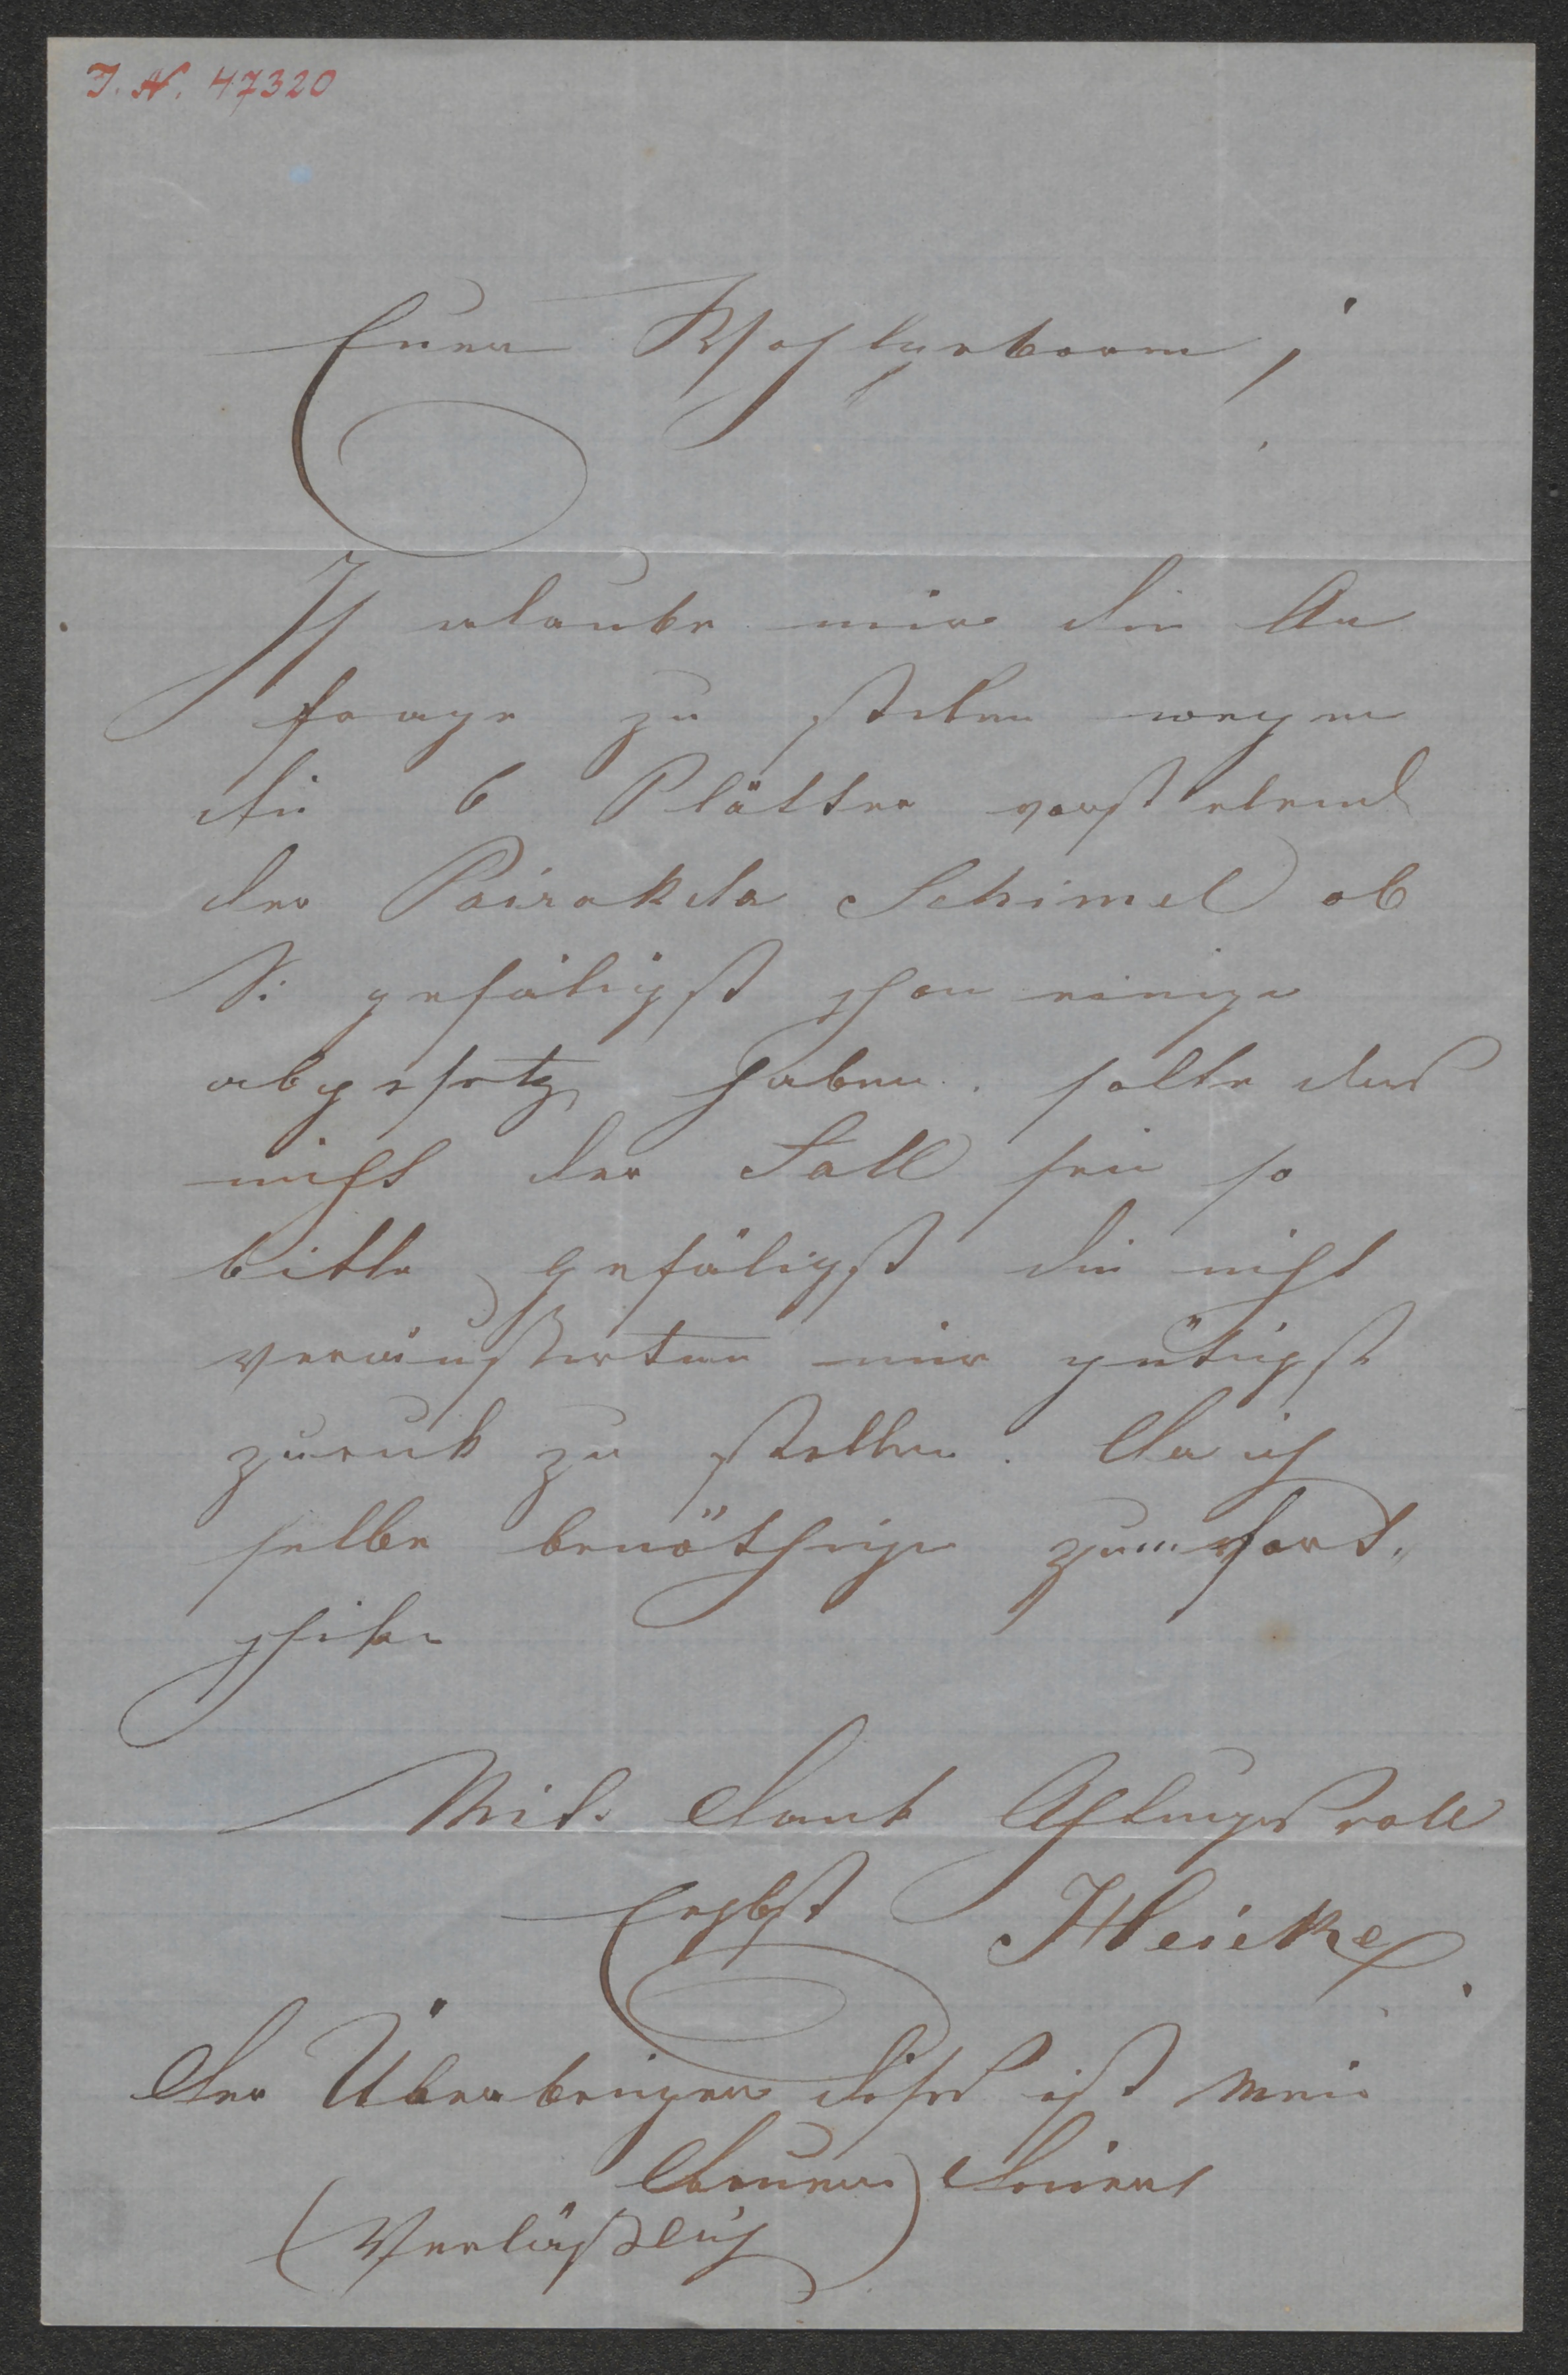 J. N. 47320
Euer Wohlgeboren,
Ich erlaube mir die An
frage zu stelen wegen
die 6 Blätter vorstelend
der Schimel ob
Si gefäligst schon einige
abgesetz haben. solte das
nicht der Fall sein so
bitte gefäligst die nicht
veräusterten mir gütigst
zuruk zu stellen. Da ich
selbe benöthige zum fort„
schiken
Mit Dank Achtungsvoll
Ergbst JHeicke
Der Überbringer dises ist mein
Diener
(Verläßlich)